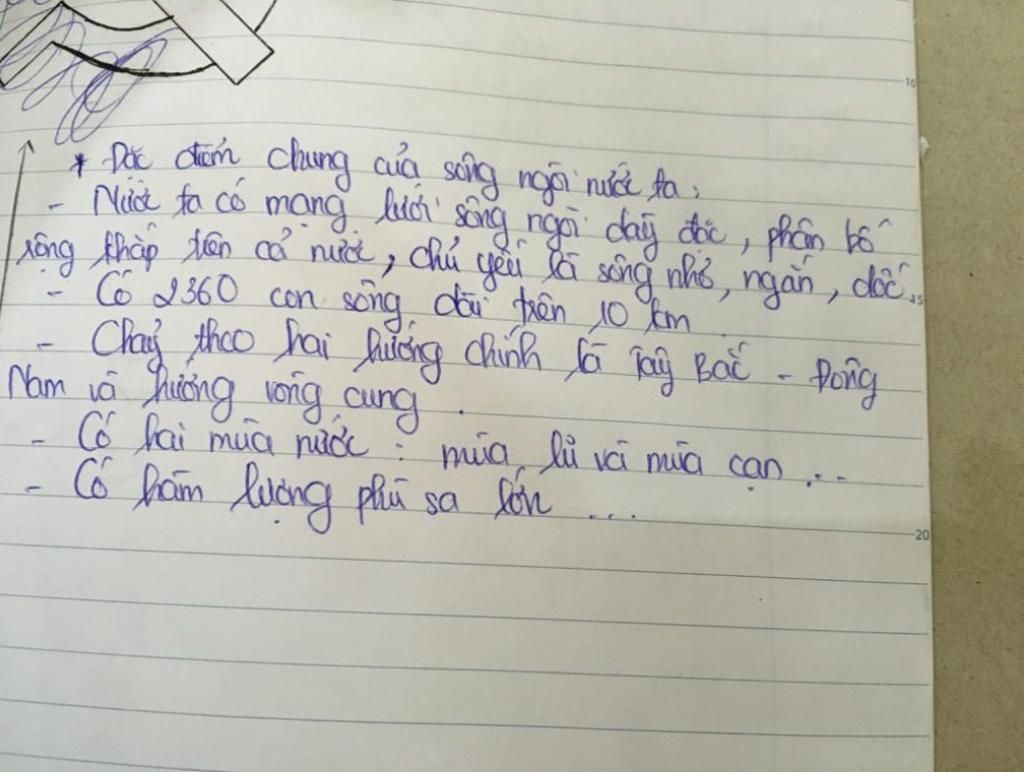 * Đặc điểm chung của sông ngòi nước ta:
- Nước ta có mạng lưới sông ngòi dày đặc, phân bố
rộng khắp trên cả nước, chủ yếu là sông nhỏ, ngắn, dốc.
- Có 2360 con sông dài trên 10 km.
- Chảy theo hai hướng chính là Tây Bắc - Đông
Nam và hướng vòng cung.
- Có hai mùa nước: mùa lũ và mùa cạn ...
- Có hàm lượng phù sa lớn ...
10
15
20